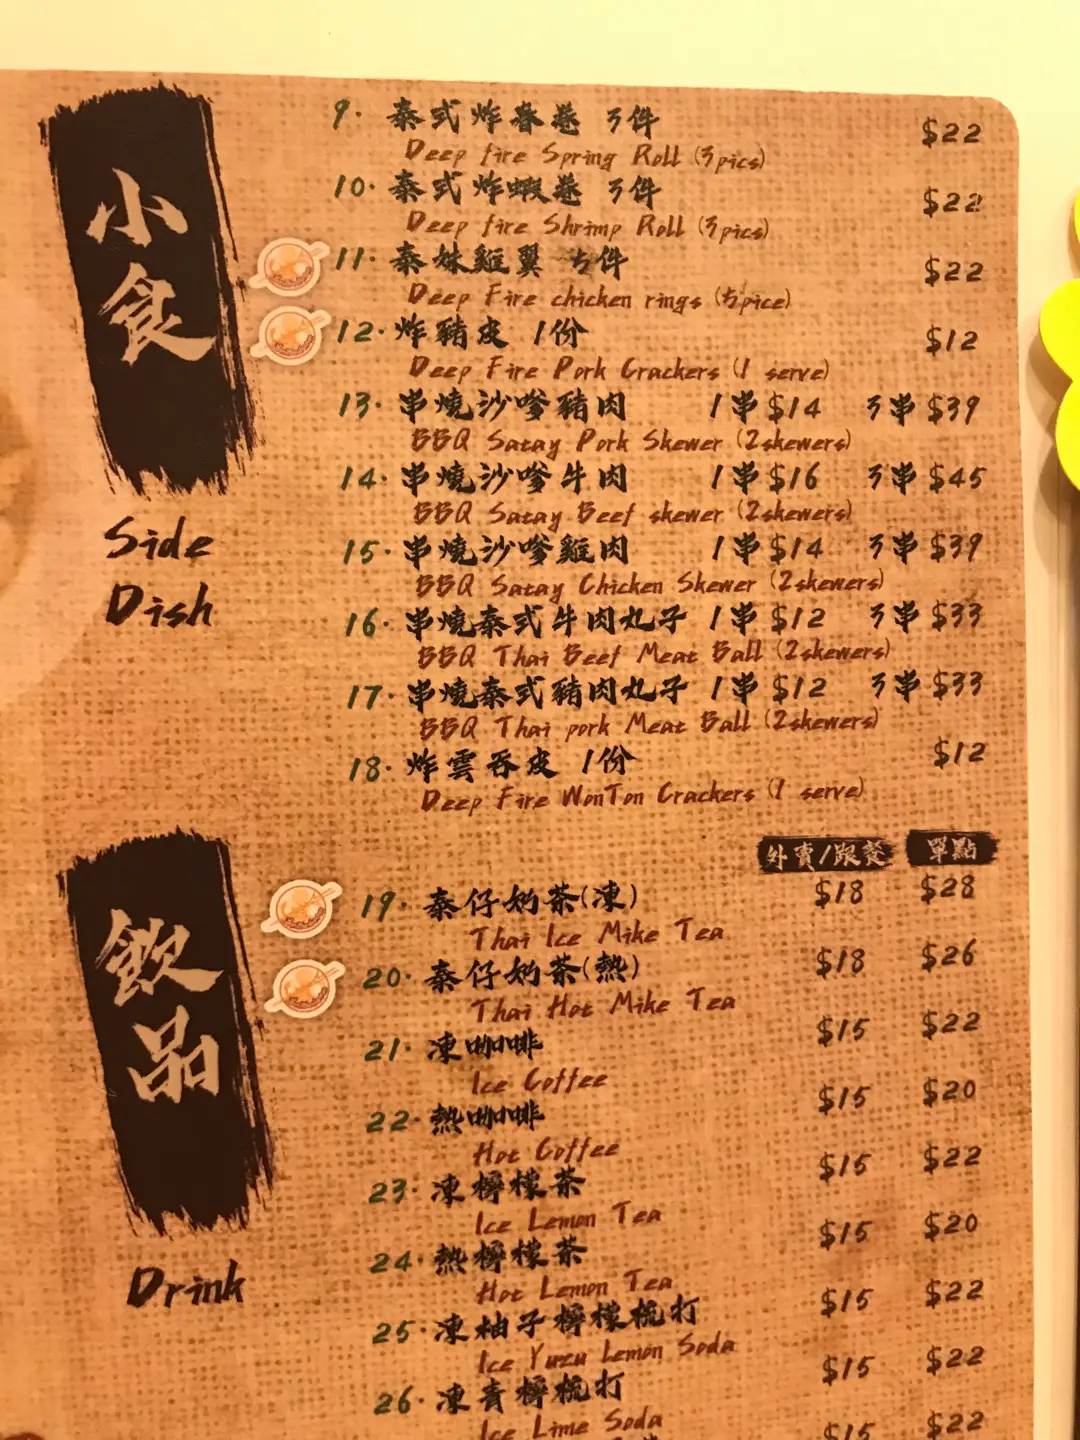 小食
Side
Dish
9. 泰式炸春卷 3件 $22
Deep fire Spring Roll (3pics)
10. 泰式炸蝦卷 3件 $22
Deep fire Shrimp Roll (3pics)
11. 泰妹雞翼 5件 $22
Deep Fire chicken rings (5pice)
12. 炸豬皮 1份 $12
Deep Fire Pork Crackers (1 serve)
13. 串燒沙嗲豬肉 1串$14 3串$39
BBQ Satay Pork Skewer (2skewers)
14. 串燒沙嗲牛肉 1串$16 3串$45
BBQ Satay Beef skewer (2skewers)
15. 串燒沙嗲雞肉 1串$14 3串$39
BBQ Satay Chicken Skewer (2skewers)
16. 串燒泰式牛肉丸子 1串$12 3串$33
BBQ Thai Beef Meat Ball (2skewers)
17. 串燒泰式豬肉丸子 1串$12 3串$33
BBQ Thai pork Meat Ball (2skewers)
18. 炸雲吞皮 1份 $12
Deep Fire WonTon Crackers (1 serve)
飲品
Drink
外賣/跟餐 單點
19. 泰仔奶茶(凍) $18 $28
Thai Ice Mike Tea
20. 泰仔奶茶(熱) $18 $26
Thai Hot Mike Tea
21. 凍咖啡 $15 $22
Ice Coffee
22. 熱咖啡 $15 $20
Hot Coffee
23. 凍檸檬茶 $15 $22
Ice Lemon Tea
24. 熱檸檬茶 $15 $20
Hot Lemon Tea
25. 凍柚子檸檬梳打 $15 $22
Ice Yuzu Lemon Soda
26. 凍青檸梳打 $15 $22
Ice Lime Soda
$15 $22